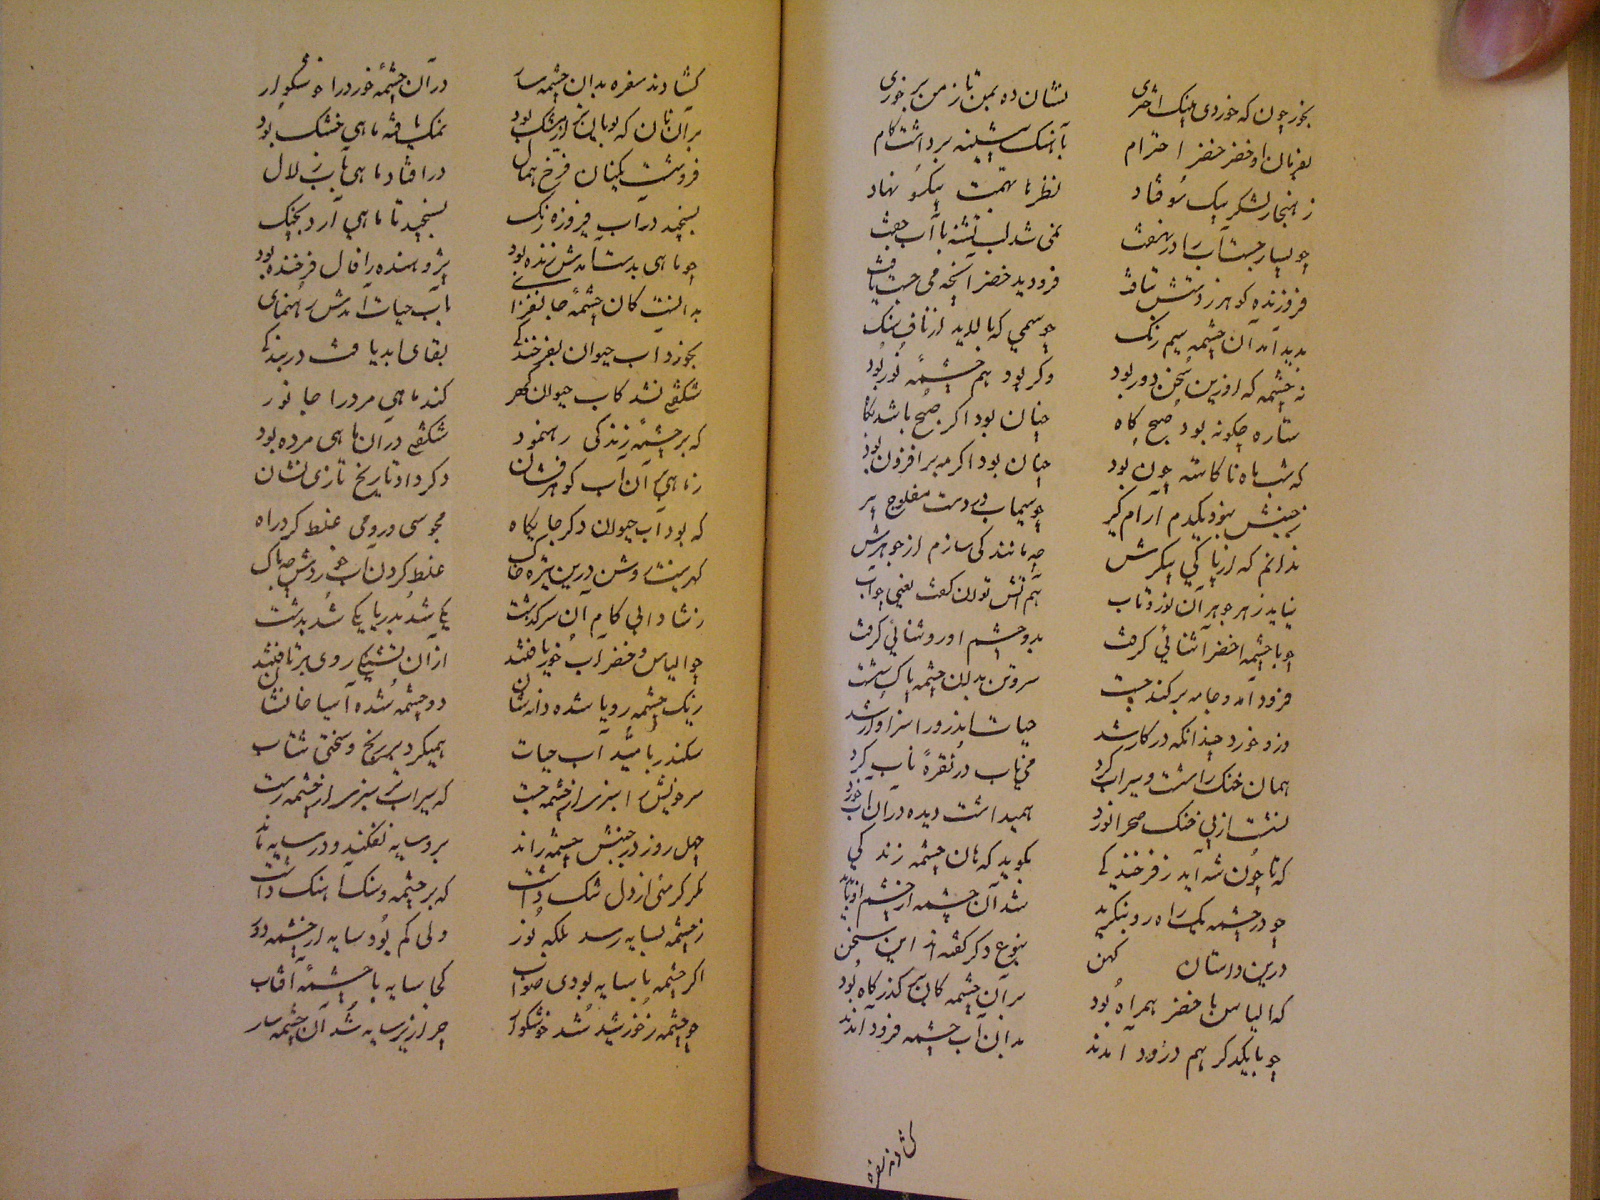 بخور چون که خوردی نیک اختری نشان ده بمن تا ز من بر خوری
بفرمان او خضر خضرا خرام بآهنک پیشینه برداشت کام
ز هنجار لشکر بیک سو فتاد نظرها بهمت بیکسو نهاد
چو بسیار جست آب را در نهفت نمی شد لب تشنه با آب جفت
فروزنده کوهر ز دستش بتافت فرو دید خضر آنچه می جست یافت
پدید آمد آن چشمه سیم رنک چو سیمی که پالاید از ناف سنک
نه چشمه که او زین سخن دور بود وکر بود هم چشمهٔ نور بود
ستاره چکونه بود صبح کاه چنان بود اکر صبح باشد پکاه
که شب ماه ناکاسته چون بود چنان بود اکر مه برافزون بود
ز جنبش نبود یکدم آرام کیر چو سیماب در دست مفلوج پیر
ندانم که از پاکی پیکرش چه مانند کی سازم از جوهرش
نیاید ز هر جوهر آن نور و تاب هم آتش توان کفت یعنی هم آب
چو با چشمه خضر آشنائی کرفت بدو چشم او روشنائی کرفت
فرود آمد و جامه برکند چست سر و تن بدان چشمه پاک شست
وزو خورد چندانکه در کار شد حیات ابد را سزاوار شد
همان خنک را شست و سیراب کرد می ناب در نقرهٔ ناب کرد
نشست از پی خنک صحرا نورد همیداشت دیده در آن آب خورد
که تا چون شه آید ز فرخندکی بکوید که هان چشمه زندکی
چو در چشمه یک راه رو بنکرید شد آن چشمه از چشم او ناپدید
درین داستان کهن بنوع دکر کفته اند این سخن
که الیاس با خضر همراه بود بر آن چشمه کان بر کذرکاه بود
چو با یکدکر هم درود آمدند بدان آب چشمه فرود آمدند
کشادند سفره
کشادند سفره بدان چشمه سار در آن چشمهٔ خورد را خوشکوار
بر آن نان که بویا تر از مشک بود نمک یافته ماهی خشک بود
فروشست یکی زان فرخ همال درافتاد ماهی بآب زلال
بسنجید در آب پیروزه رنک بسنجید تا ماهی آرد بچنک
چو ماهی بدست آمدش زنده بود پژوهنده را فال فرخنده بود
بدانست کان چشمهٔ جانفزا بآب حیات آمدش رهنمای
بخورد آب حیوان بفرخندکی بقای ابد یافت در بندکی
شکفتی نشد کاب حیوان کهر کند ماهی مرده را جانور
که بر چشمهٔ زندکی رهنمود شکفتی در آن ماهی مرده بود
ز ماهی بر آن آب کوهر فشان دکر داد تاریخ تازی نشان
که بود آب حیوان دکر جایکاه مجوسی و رومی غلط کرد راه
کهر نیست روشن درین تیره خاک غلط کردن آب خوردش چه باک
ز شادابی کام آن سرکذشت یکی شد بدریا یکی شد بدشت
چو الیاس و خضر آب خور یافتند از آن تشنکی روی برتافتند
ز یک چشمه رویا شده دانه شان دو چشمه شده آسیا خانشان
سکندر بامید آب حیات همیکرد بر رنج و سختی شتاب
سر خویش را سبز سر از چشمه جست که سیراب تر سبز سر از چشمه رست
چهل روز در جنبش چشمه راند برو سایه نفکند و در سایه ماند
مکر کرمئی از دل تنک داشت که بر چشمه و سنک آهنک داشت
ز چشمه بسایه رسد بلکه نور ولی کم بود سایه از چشمه دور
اکر چشمه با سایه بودی صواب کجا سایه با چشمهٔ آفتاب
چو چشمه ز خورشید شد خوشکوار چرا زیر سایه شد آن چشمه سار